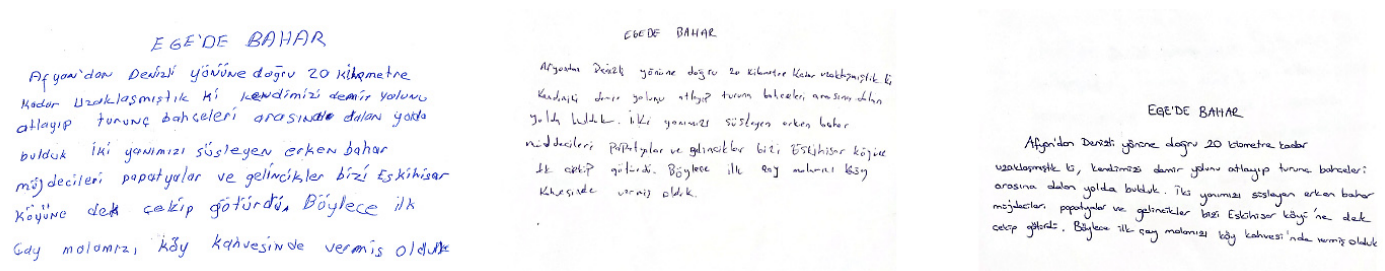 EGE'DE BAHAR
Afyon'dan Denizli yönüne doğru 20 kilometre
kadar uzaklaşmıştık ki kendimizi demir yolunu
atlayıp turunç bahçeleri arasında dalan yolda
bulduk iki yanımızı süsleyen erken bahar
müjdecileri papatyalar ve gelincikler bizi Eskihisar
köyüne dek çekip götürdü. Böylece ilk
Çay molamızı, köy kahvesinde vermiş olduk
EGEDE BAHAR
Afyondan Denizli yönüne doğru 20 kilometre kadar uzaklaşmıştık ki
kendimizi demir yolunu atlayıp turunç bahçeleri arasına dalan
yolda bulduk. İki yanımızı süsleyen erken bahar
müjdecileri papatyalar ve gelincikler bizi Eskihisar köyüne
dek çekip götürdü. Böylece ilk çay molamızı köy
kahvesinde vermiş olduk.
EGE'DE BAHAR
Afyon'dan Denizli yönüne doğru 20 kilometre kadar
uzaklaşmıştık ki, kendimizi demir yolunu atlayıp turunç bahçeleri
arasına dalan yolda bulduk. İki yanımızı süsleyen erken bahar
müjdecileri papatyalar ve gelincikler bizi Eskihisar köyü'ne dek
çekip götürdü. Böylece ilk çay molamızı köy kahvesi'nde vermiş olduk